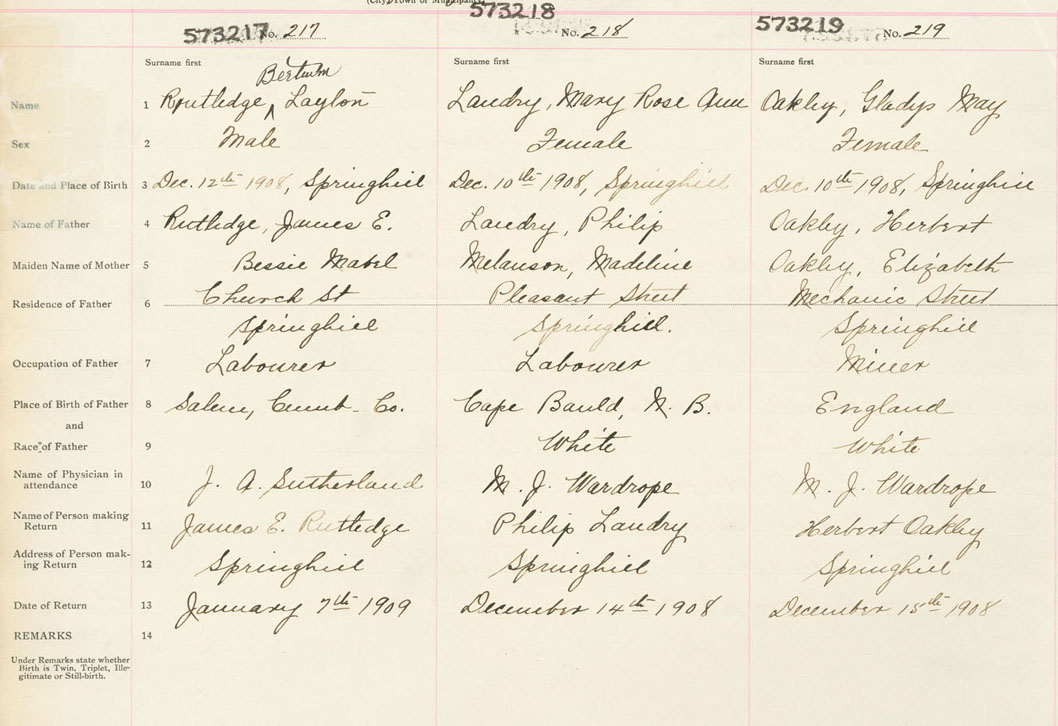 573217 No. 217
573218 No. 218
573219 No. 219
Surname first
Surname first
Surname first
Name 1 Routledge, Layton Landry, Mary Rose Ann Oakley, Gladys May
Sex 2 Male Female Female
Date and Place of Birth 3 Dec. 12th 1908, Springhill Dec. 10th 1908, Springhill Dec. 10th 1908, Springhill
Name of Father 4 Rutledge, James E. Landry, Philip Oakley, Herbert
Maiden Name of Mother 5 Bessie Mabel Melanson, Madeline Oakley, Elizabeth
Residence of Father 6 Church St Pleasant Street Mechanic Street
Springhill Springhill. Springhill
Occupation of Father 7 Labourer Labourer Miner
Place of Birth of Father 8 Salem, Cumb. Co. Cape Bauld, N. B. England
and
Race of Father 9 White White
Name of Physician in
attendance 10 J. A. Sutherland M. J. Wardrope M. J. Wardrope
Name of Person making
Return 11 James E. Rutledge Philip Landry Herbert Oakley
Address of Person mak-
ing Return 12 Springhill Springhill Springhill
Date of Return 13 January 7th 1909 December 14th 1908 December 15th 1908
REMARKS 14
Under Remarks state whether
Birth is Twin, Triplet, Ille-
gitimate or Still-birth.